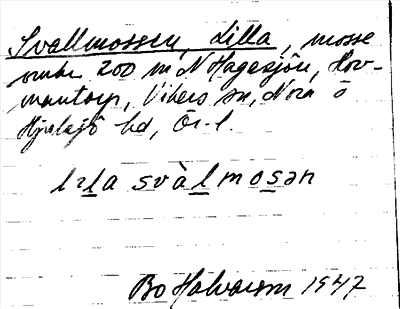 Svallmossen, Lilla, mosse
omkr. 200 m N Hagasjön, Hov-
mantorp, Vikers sn, Nora o
Hjulsjö hd, Ör. l.
lɪla svàlmosən
Bo Halvarsson 1947